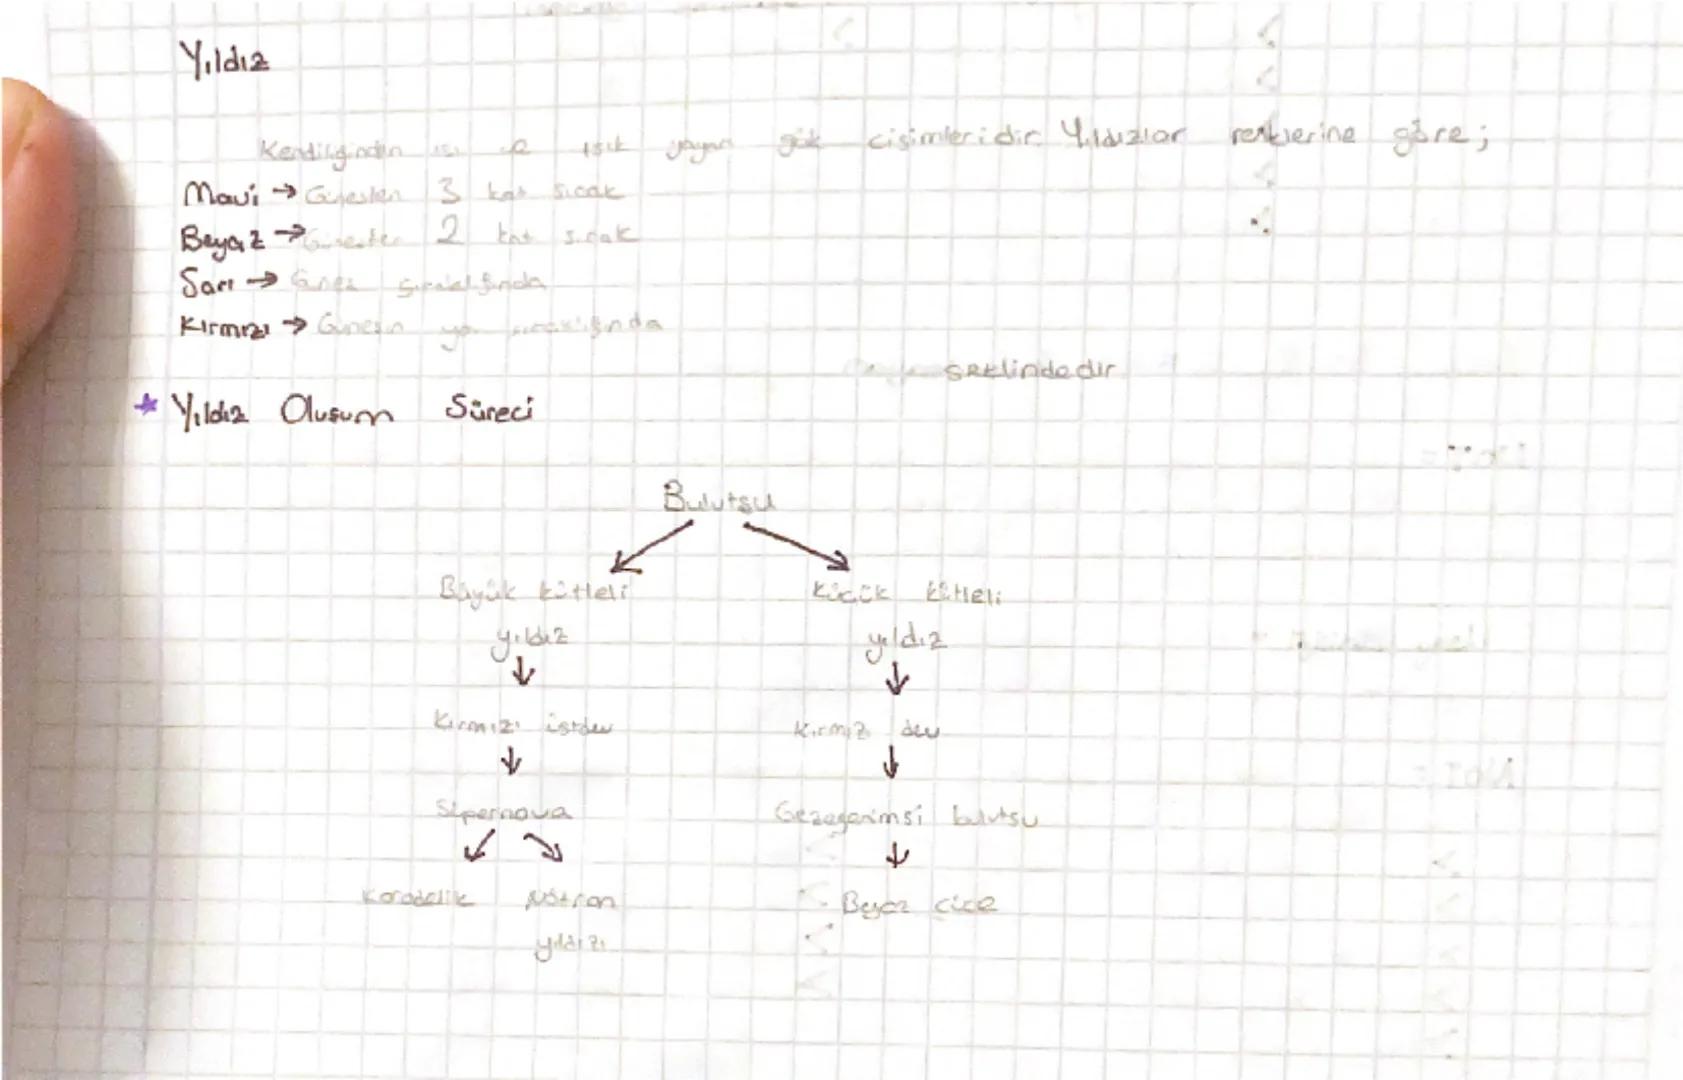 Yıldız
Kendiliğinden ısı ve ışık yayan gök cisimleridir. Yıldızlar renklerine göre;
Mavi → Güneşten 3 kat sıcak
Beyaz → Güneşten 2 kat sıcak
Sarı → Güneş sıcaklığında
Kırmızı → Güneşin yarı sıcaklığında
şeklindedir
* Yıldız Oluşum Süreci
Bulutsu
Büyük kütleli Küçük kütleli
yıldız yıldız
↓ ↓
Kırmızı üstdev Kırmızı dev
↓ ↓
Süpernova Gezegenimsi bulutsu
↙ ↘ ↓
Karadelik Nötron Beyaz cüce
yıldızı